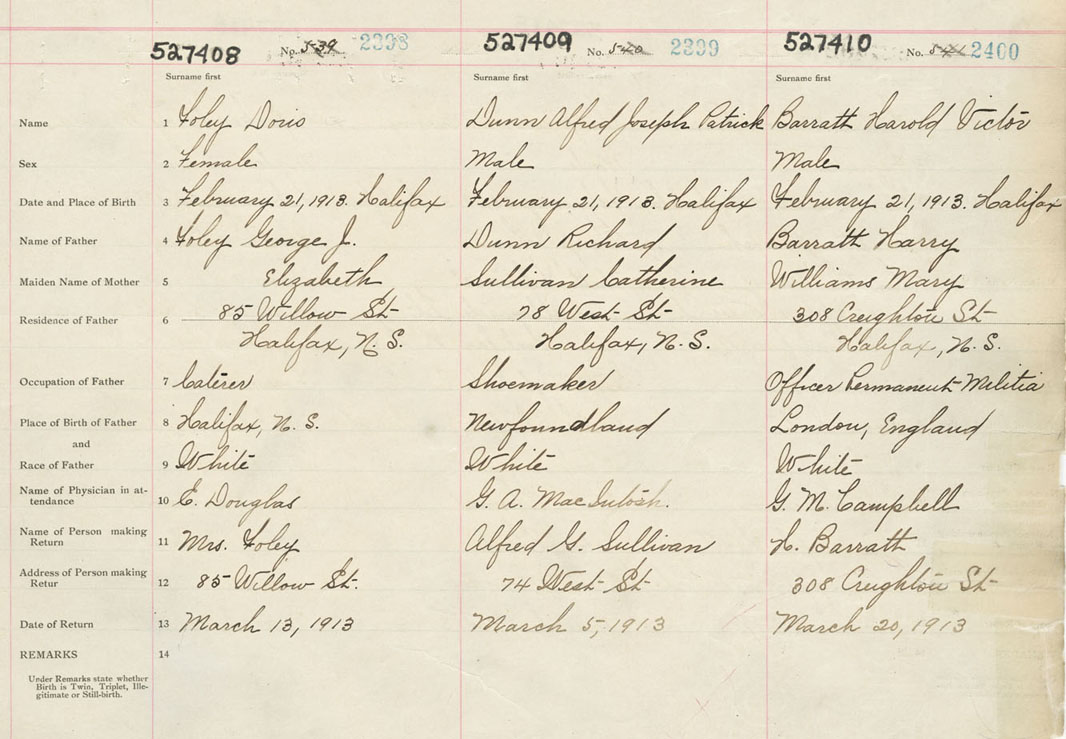 527408 No. 539 2398 527409 No. 540 2399 527410 No. 541 2400
Surname first Surname first Surname first
Name 1 Foley Doris Dunn Alfred Joseph Patrick Barratt Harold Victor
Sex 2 Female Male Male
Date and Place of Birth 3 February 21, 1913. Halifax February 21, 1913. Halifax February 21, 1913. Halifax
Name of Father 4 Foley George J. Dunn Richard Barratt Harry
Maiden Name of Mother 5 Elizabeth Sullivan Catherine Williams Mary
Residence of Father 6 85 Willow St 78 West St 308 Creighton St
Halifax, N.S. Halifax, N.S. Halifax, N.S.
Occupation of Father 7 Caterer Shoemaker Officer Permanent Militia
Place of Birth of Father 8 Halifax, N.S. Newfoundland London, England
and
Race of Father 9 White White White
Name of Physician in at-
tendance 10 E. Douglas G. A. MacIntosh. G. M. Campbell
Name of Person making
Return 11 Mrs. Foley Alfred G. Sullivan H. Barratt
Address of Person making
Retur 12 85 Willow St. 74 West St 308 Creighton St
Date of Return 13 March 13, 1913 March 5, 1913 March 20, 1913
REMARKS 14
Under Remarks state whether
Birth is Twin, Triplet, Ille-
gitimate or Still-birth.